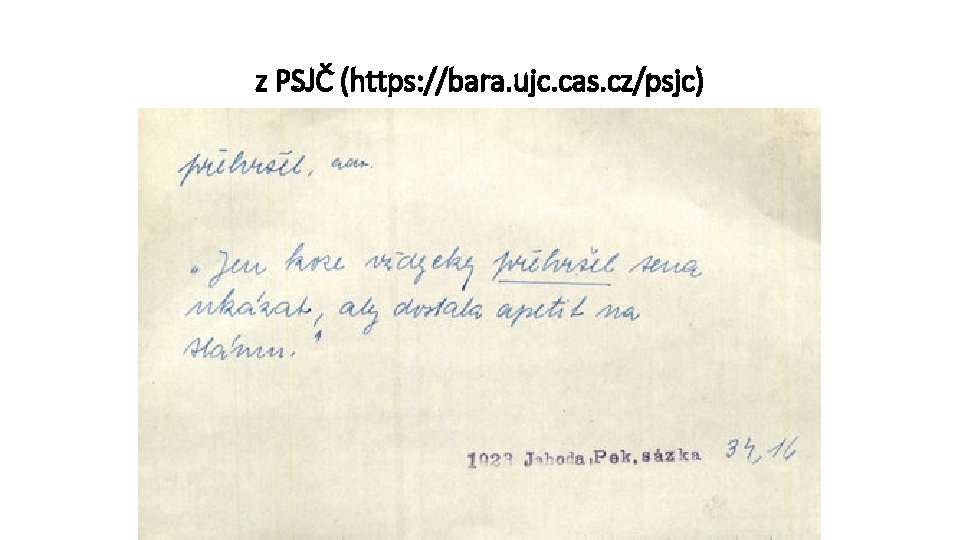 z PSJČ (https: //bara. ujc. cas. cz/psjc)
příhrštěl,
„Jen koze vždycky příhršel sena
ukázat, aby dostala apetit na
slámu."
1923 Jahoda, Pek. sázka 34, 16